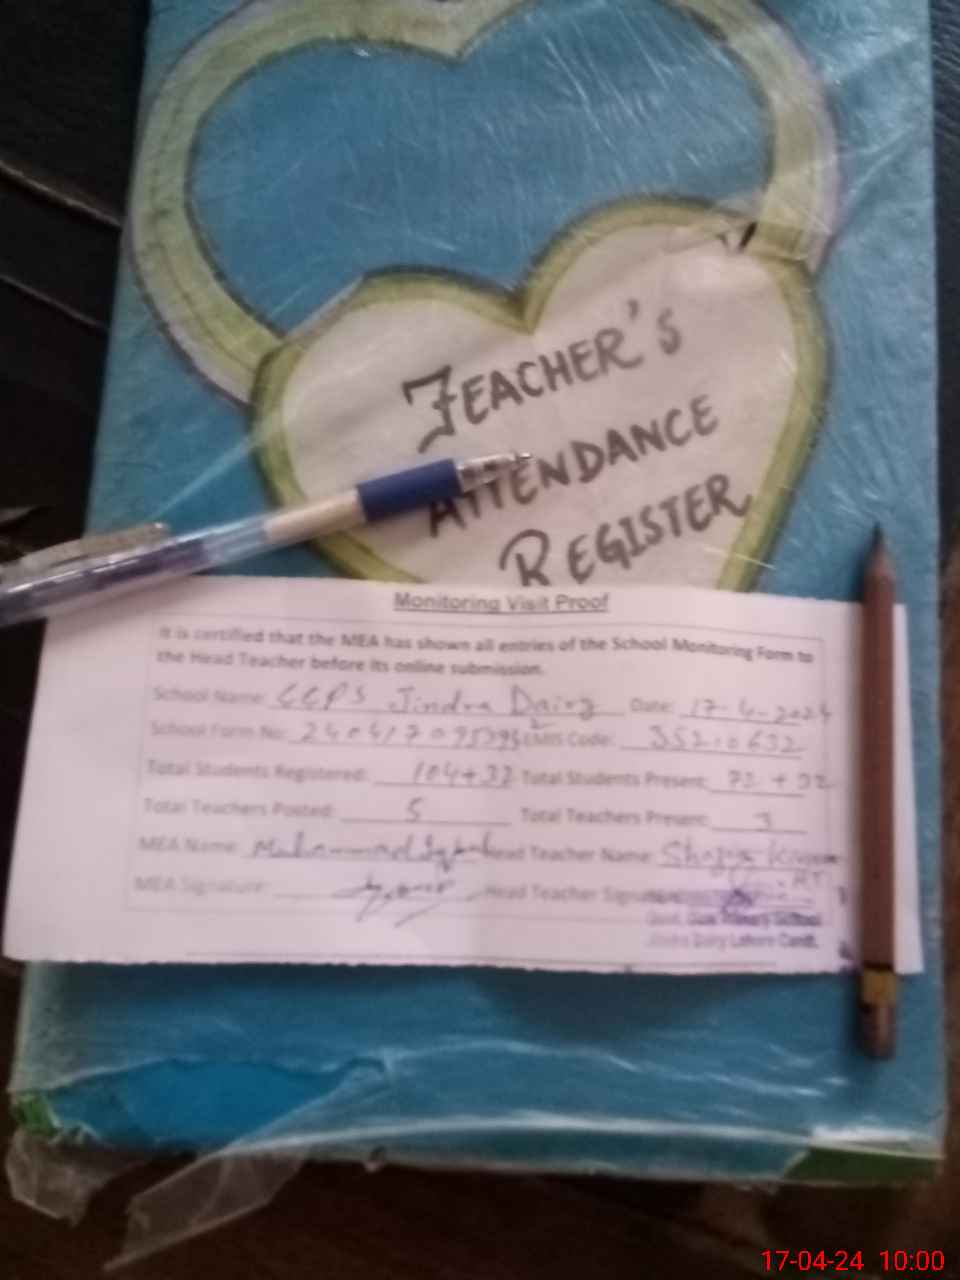 TEACHER'S
ATTENDANCE
REGISTER
Monitoring Visit Proof
It is certified that the MEA has shown all entries of the School Monitoring Form to
the Head Teacher before its online submission.
School Name: GGPS Jindra Dairy Date: 17-4-2024
School Form No: EMIS Code: 35210632
Total Students Registered: 104+32 Total Students Present: 72 + 32
Total Teachers Posted: 5 Total Teachers Present: 3
MEA Name: Muhammad Head Teacher Name:
MEA Signature: Head Teacher Signature:
Govt. Girls Primary School
Jindra Dairy Lahore Cantt.
17-04-24 10:00